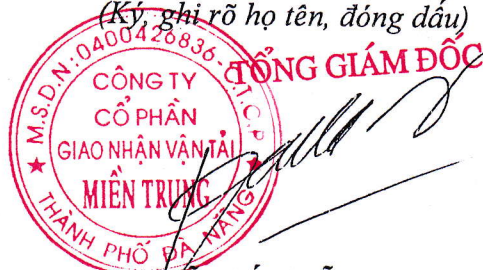 (Ký, ghi rõ họ tên, đóng dấu)
TỔNG GIÁM ĐỐC
M.S.D.N:0400426836-C.T.C.P
CÔNG TY
CỔ PHẦN
GIAO NHẬN VẬN TẢI
MIỀN TRUNG
THÀNH PHỐ ĐÀ NẴNG